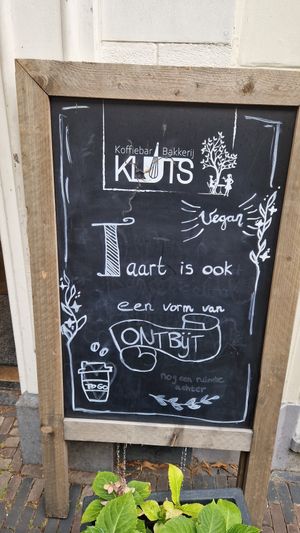 Koffiebar Bakkerij
KLUTS
Vegan
Taart is ook
een vorm van
ONTBIJT
nog een ruimte
achter
TO GO